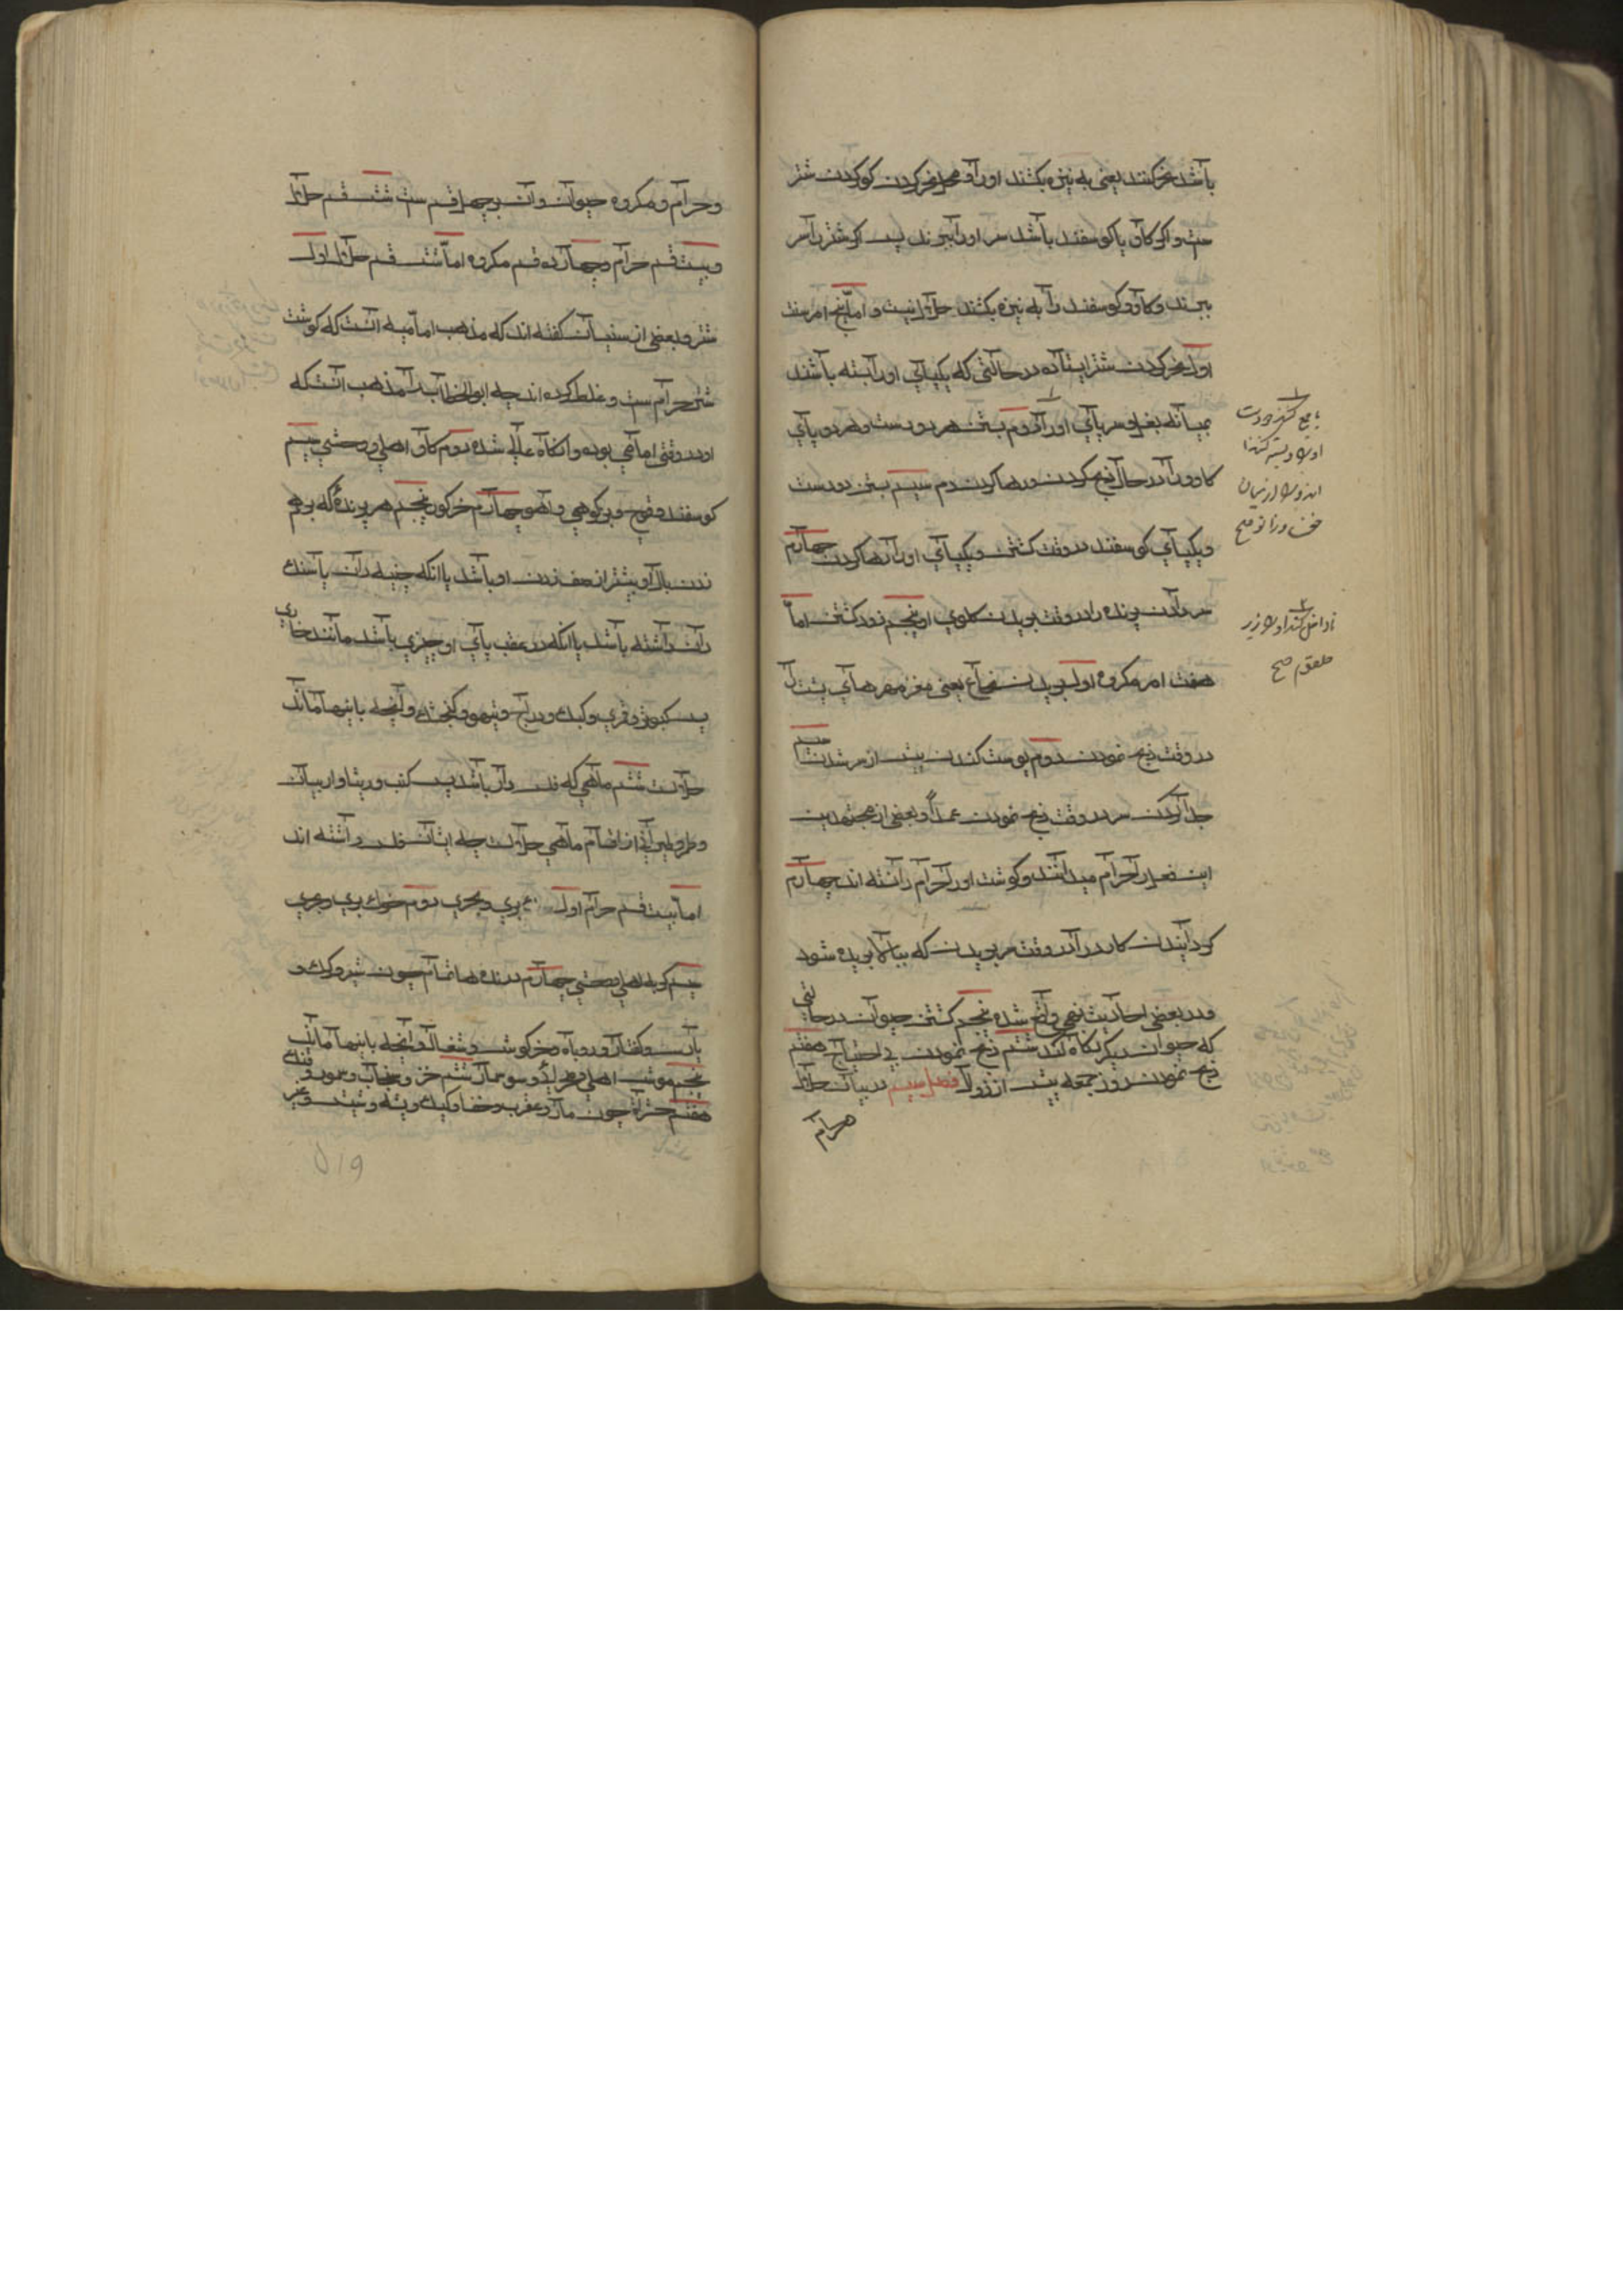 باشد نحر کنند یعنی به نیزه بکشند اورا و محل نحر کردن کو کردن شتر
ست و اکر کاو یا کوسفند باشد سر اورا ببرند پس اکر شتر را سر
ببرند و کاو و کوسفند را به نیزه بکشند حلال نیست و اما پنج امر سنت
اول نحر کردن شتر ایستاده در حالتی که یکپای اورا بسته باشند
میانه بغل و سر پای اورا دوم بستن هر دو دست و هر دو پای
کاو را در حال ذبح کردن و رها کردن دم سیم بستن دو دست
و یکپای کوسفند در وقت کشتن و یکپای اورا رها کردن چهارم
سر دادن پرنده را در وقت بریدن کلوی او پنجم زود کشتن اما
هفت امر مکروه اول بریدن نخاع یعنی مغز مهرهای پشت را
در وقت ذبح نمودن دوم پوست کندن پیش از سرد شدن سیم
جدا کردن سر در وقت ذبح نمودن عمداً و بعضی از مجتهدین
این فعل را حرام میدانند و کوشت اورا حرام دانسته اند چهارم
کردانیدن کارد را در وقت سر بریدن که ببالا بریده شود
و در بعضی احادیث نهی واقع شده پنجم کشتن حیوان در حالتی
که حیوان دیکر نکاه کند ششم ذبح نمودن بی احتیاج هفتم
ذبح نمودن روز جمعه پیش از زوال فصل سیم در بیان حلال
و حرام
و حرام و مکروه حیوان و آن بر چهل قسم ست شش قسم حلال
و بیست قسم حرام و چهارده قسم مکروه اما شش قسم حلال اول
شتر و بعضی از سنیان کفته اند که مذهب امامیه آنست که کوشت
شتر حرام ست و غلط کرده اند چه ابوالخطاب را مذهب آنست که
او در وقتی امامی بوده و انکاه غالی شده دوم کاو اهلی و وحشی سیم
کوسفند و قوچ و بز کوهی و آهو چهارم خر کور پنجم هر پرنده که بر هم
زدن بال او بیشتر از صف زدن او باشد یا آنکه چینه دان یا سنک
دان داشته باشد یا آنکه در عقب پای او چیزی باشد مانند خاری
پس کبوتر و قمری و کبک و دراج و تیهو و کنجشک و آنچه باینها ماند
حلالست ششم ماهی که فلس دار باشد پس کنب و ربیثا و اربیان
و طمر و ابلامی از اقسام ماهی حلالست چه ایشان فلس داشته اند
اما بیست قسم حرام اول سک بری و بحری دوم خوک بری و بحری
سیم کربه اهلی و وحشی چهارم درنده ها تمام چون شیر و کرک و
پارس و کفتار و روباه و خرکوش و شغال و آنچه باینها ماند
پنجم موش اهلی و صحرایی و سوسمار ششم خز و سنجاب و سمور و فنک
هفتم حشرات چون مار و عقرب و خنفسا و کیک و پشه و شپش و غیر